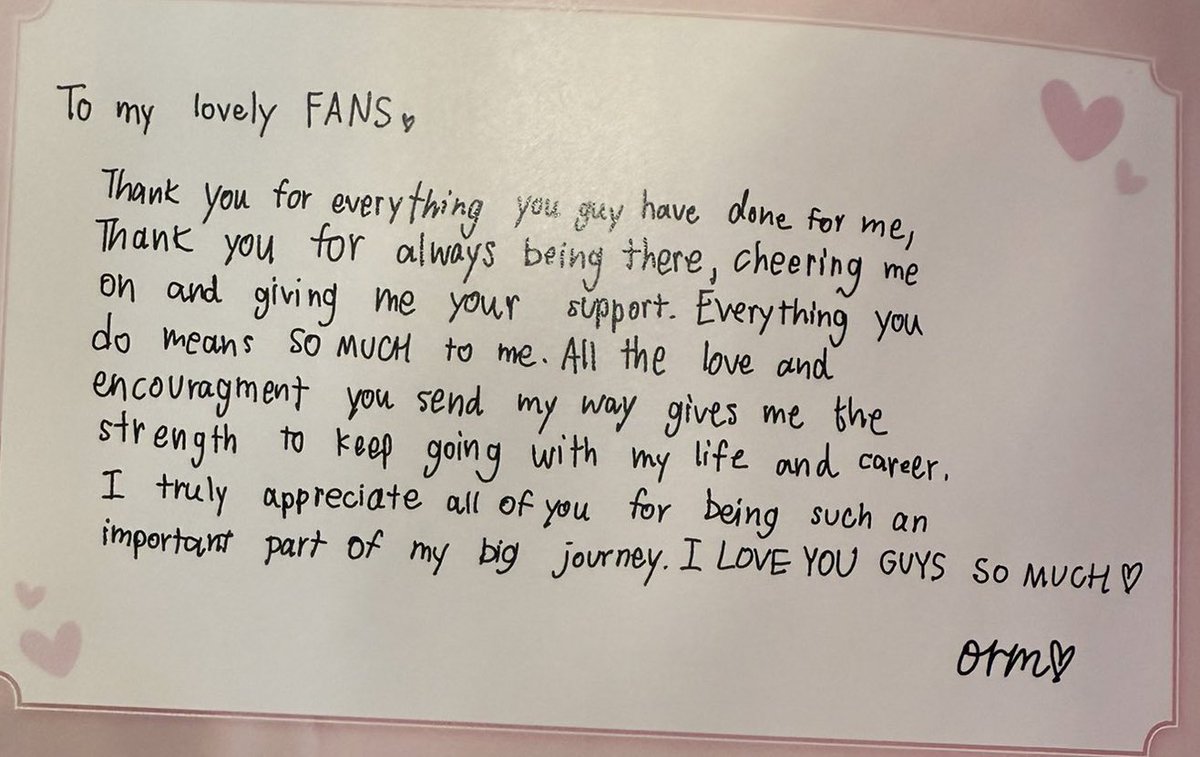 To my lovely FANS♥
Thank you for everything you guy have done for me,
Thank you for always being there, cheering me
on and giving me your support. Everything you
do means SO MUCH to me. All the love and
encouragment you send my way gives me the
strength to keep going with my life and career.
I truly appreciate all of you for being such an
important part of my big journey. I LOVE YOU GUYS SO MUCH♡
orm♡